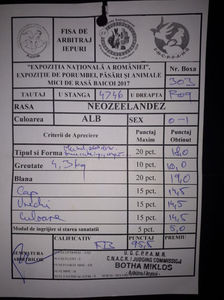 FISA DE
ARBITRAJ
IEPURI
"EXPOZIȚIA NAȚIONALĂ A ROMÂNIEI"
EXPOZIȚIE DE PORUMBEI, PĂSĂRI ȘI ANIMALE
MICI DE RASĂ BAICOI 2017
Nr. Boxa
303
TATUAJ U STANGA 4746 U DREAPTA R09
RASA NEOZEELANDEZ
Culoarea ALB SEX 0-1
Criterii de Apreciere Punctaj Maxim Punctaj Obtinut
Tipul si Forma 20 pct. 18,0
Greutate 4,3 kg 10 pct. 10,0
Blana 20 pct. 19,0
Cap 15 pct. 14,5
Urechi 15 pct. 14,5
Culoarea 15 pct. 14,5
Modul de ingrijire si starea sanatatii 5 pct. 5,0
CALIFICATIV PUNCTAJ PREMIU
FB 95,5
U.G.C.P.P.A.M.R.
C.N.A.C.R. / JUDGING COMMISSION
BOTHA MIKLOS